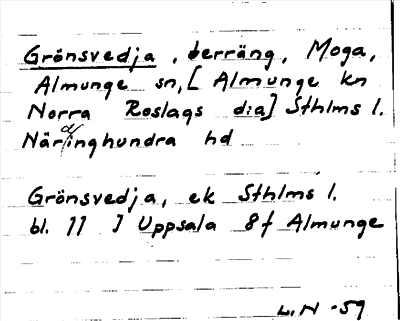 Grönsvedja, terräng, Moga,
Almunge sn, [Almunge kn
Norra Roslags d:a] Sthlms l.
Närdinghundra hd
Grönsvedja, ek Sthlms l.
bl. 77 I Uppsala 8f Almunge
L.N -59